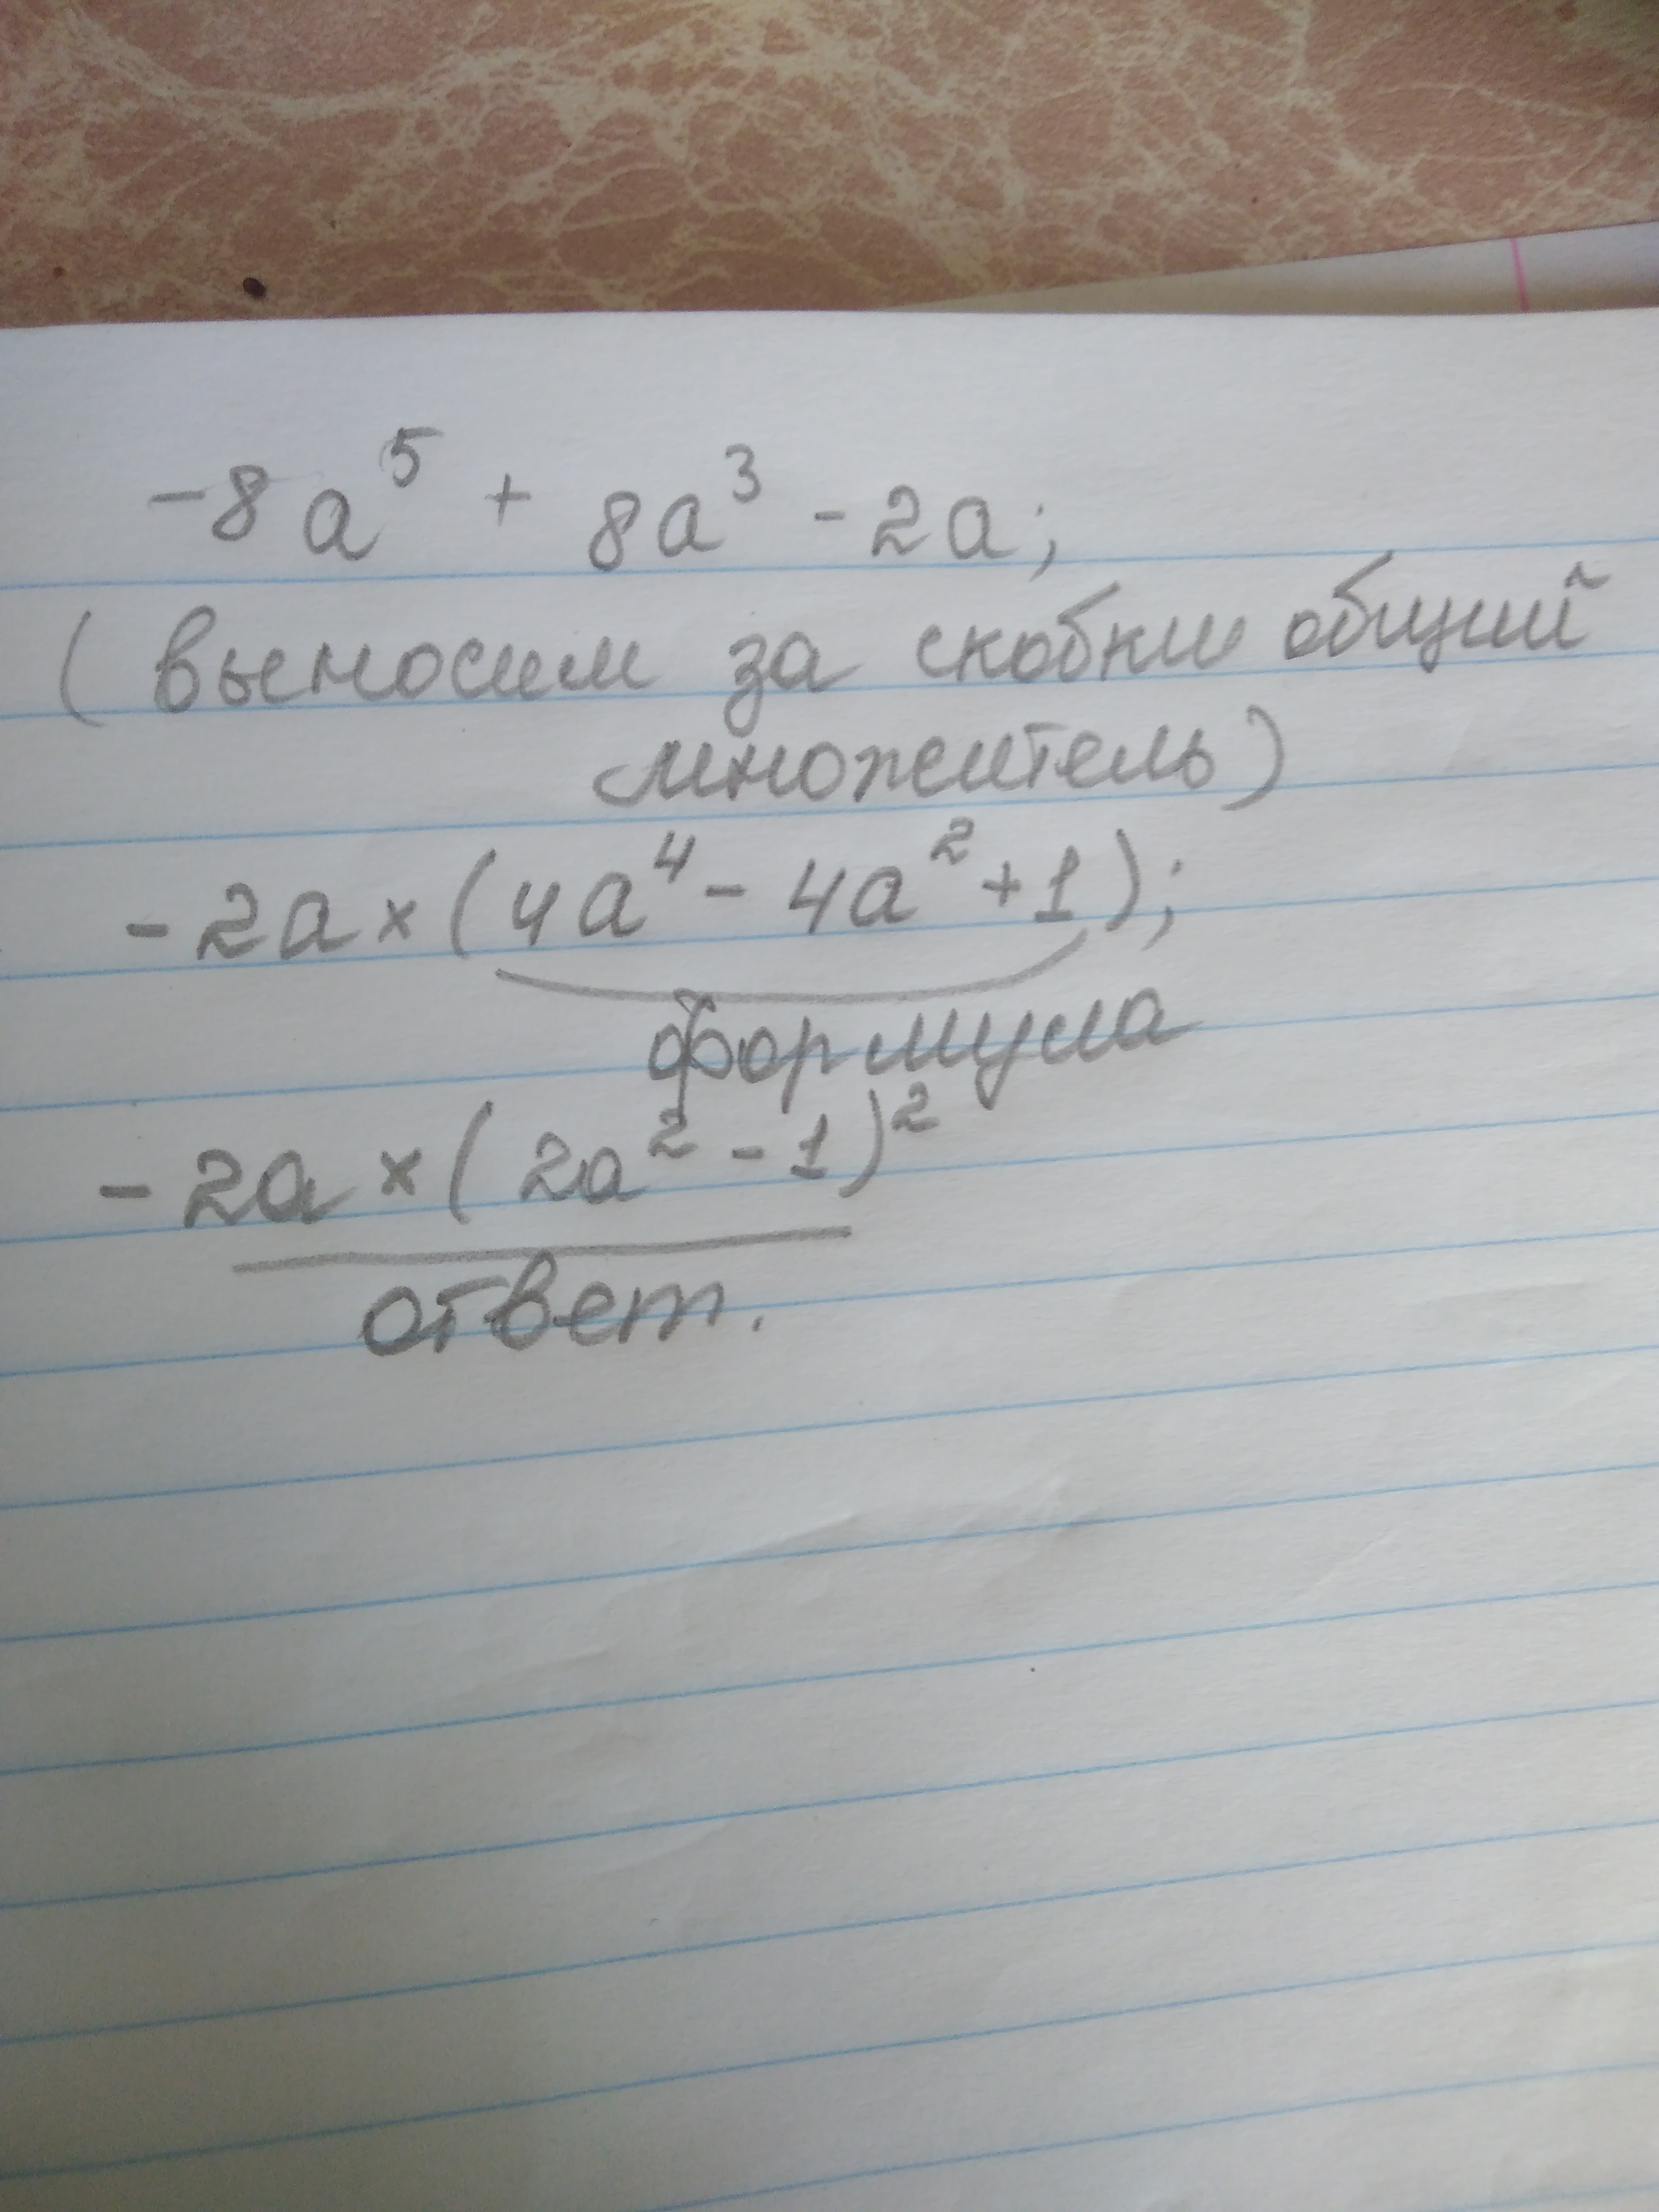 -8a⁵ + 8a³ - 2a;
(выносим за скобки общий
множитель)
-2a × (4a⁴ - 4a² + 1);
формула
-2a × (2a² - 1)²
ответ.